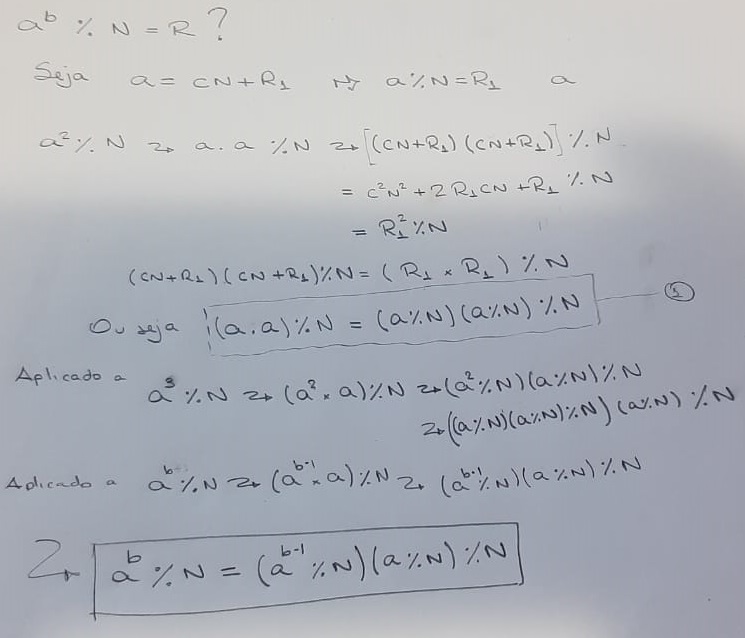 a^b % N = R ?
Seja a = CN+R₁ ⇒ a%N=R₁ a
a²% N → a.a %N → [(CN+R₁)(CN+R₁)]%N
= C²N² + 2R₁CN + R₁ % N
= R₁² %N
(CN+R₁)(CN+R₁)%N = (R₁ × R₁) % N
Ou seja (a.a)%N = (a%N)(a%N)%N ①
Aplicado a a³ %N → (a² × a)%N → (a²%N)(a%N)%N
→ ((a%N)(a%N)%N)(a%N) % N
Aplicado a a^b %N → (a^b-1 × a)%N → (a^b-1 %N)(a%N)%N
→ a^b % N = (a^b-1 %N)(a%N)%N